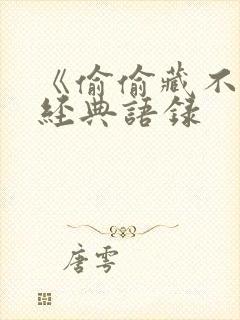 《偷偷藏不
經典語錄
唐雲